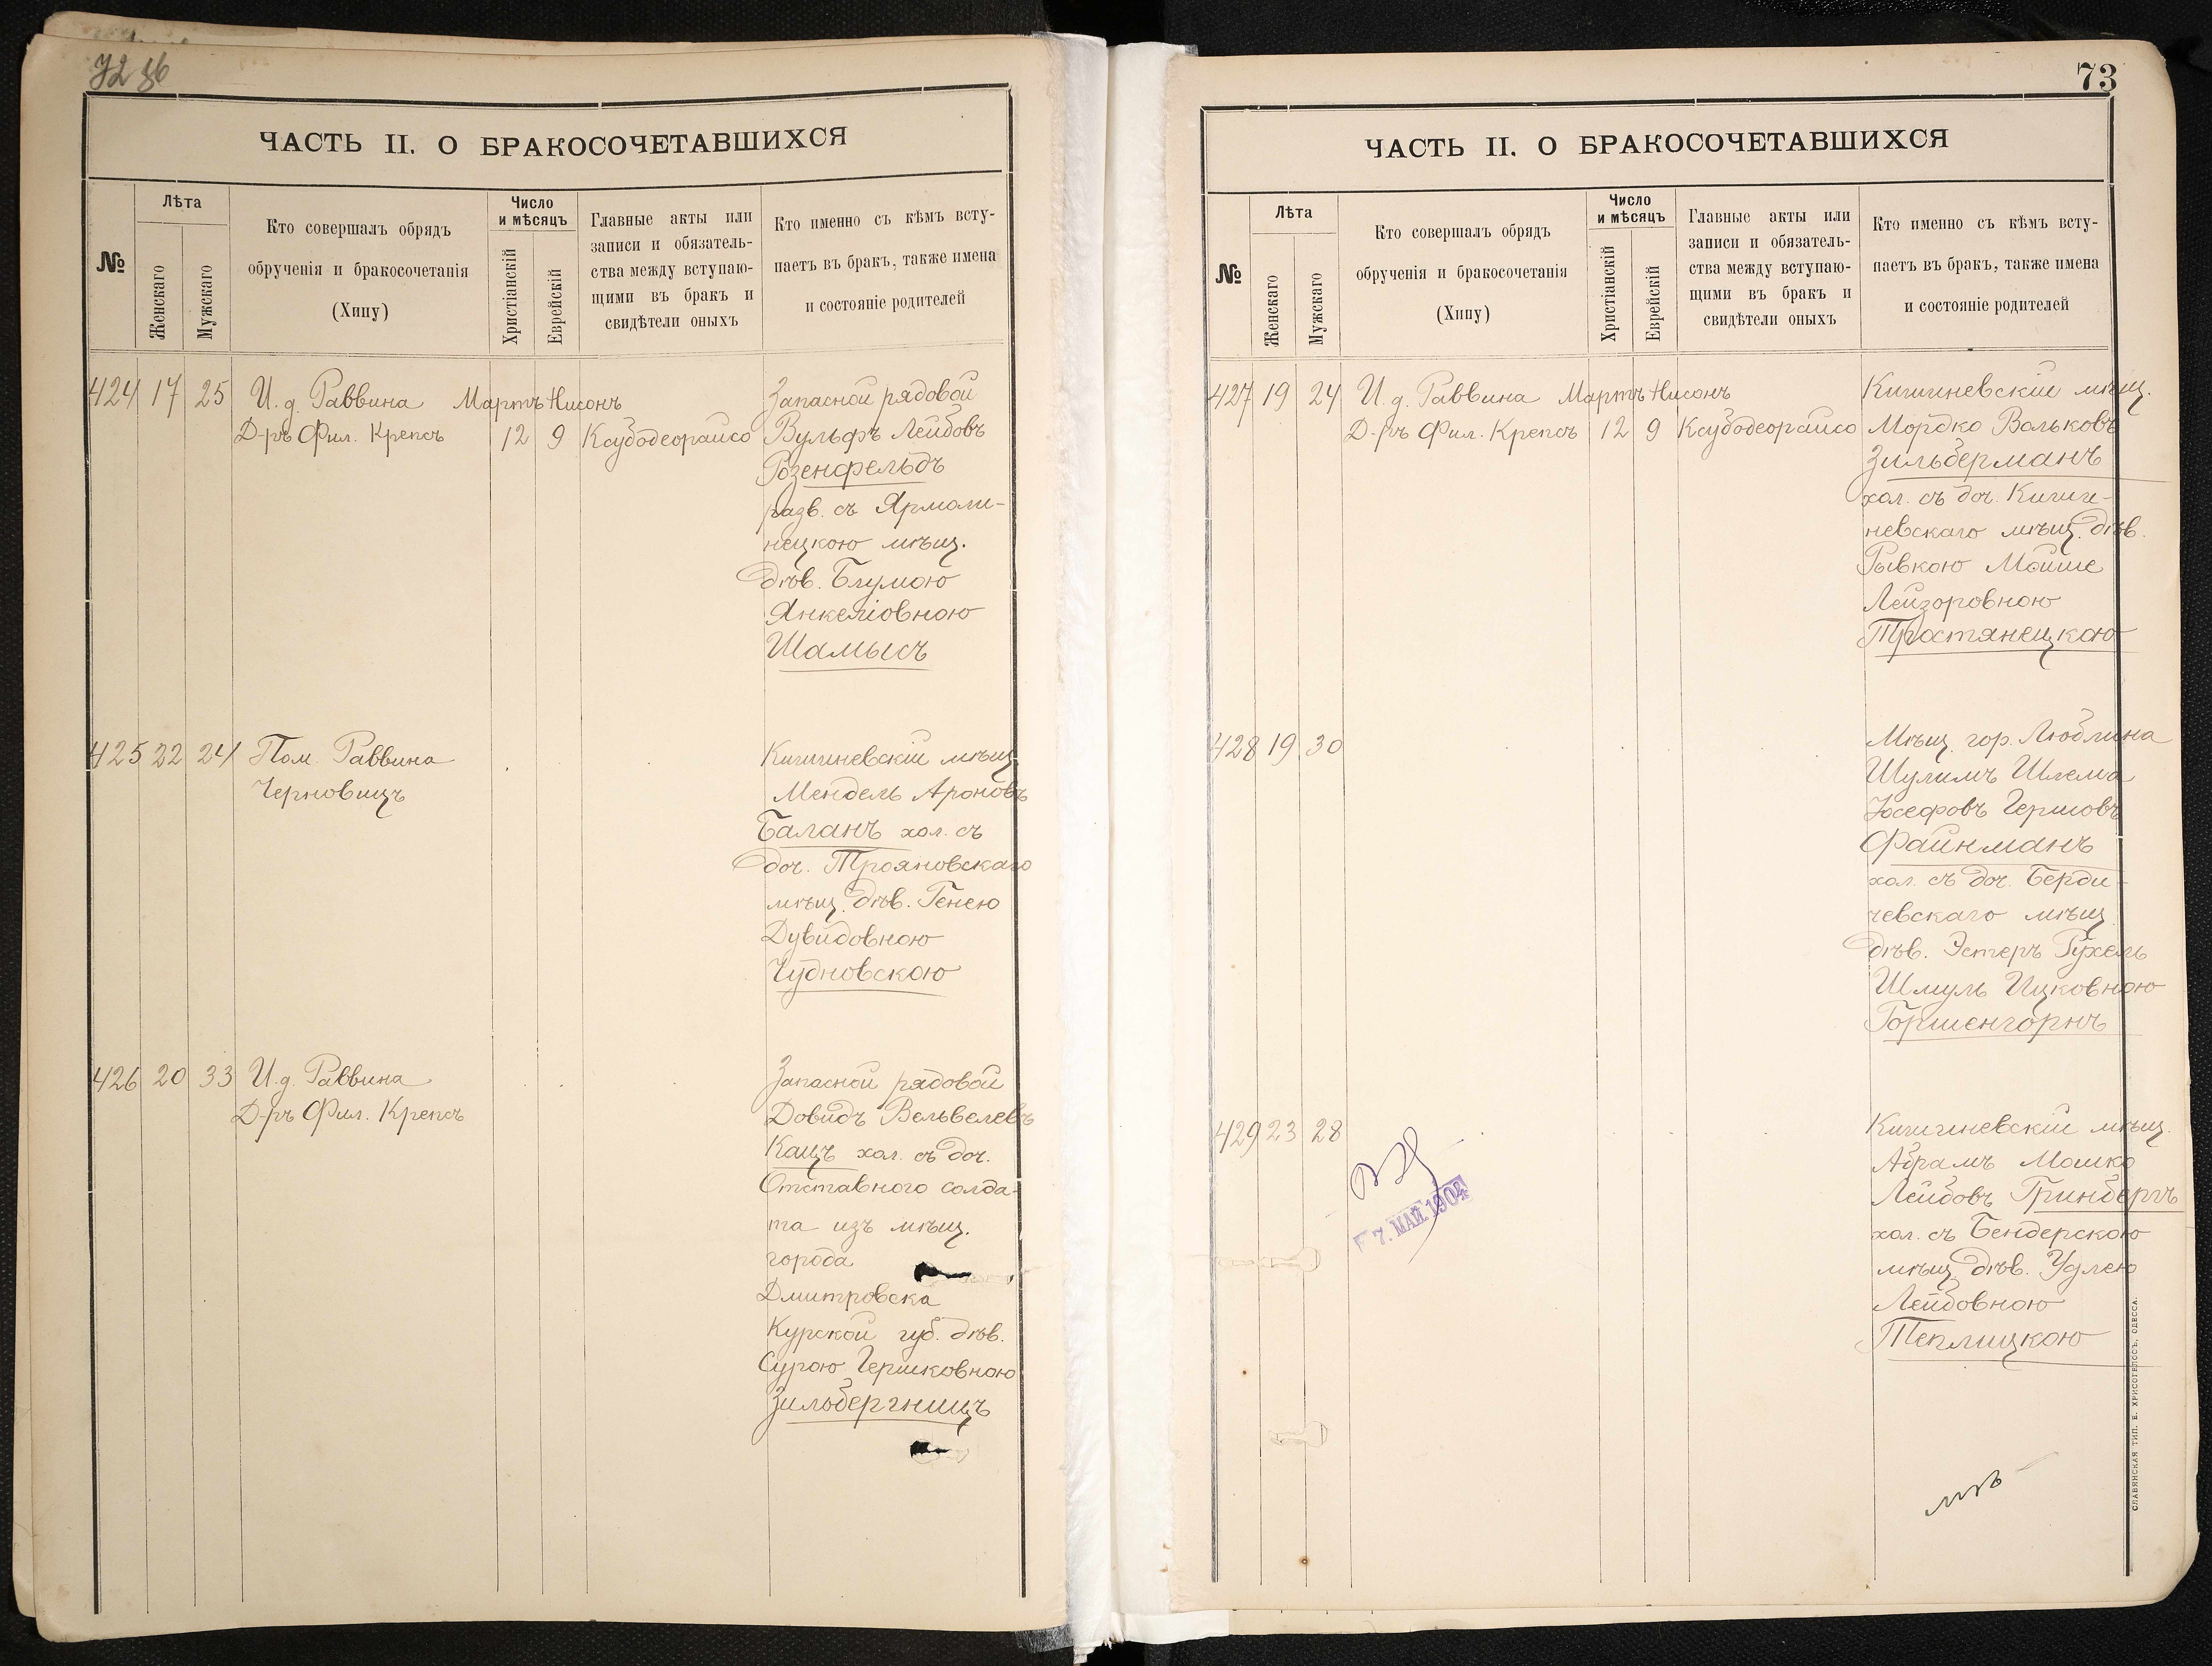 72 об
ЧАСТЬ II. О БРАКОСОЧЕТАВШИХСЯ
№
Лѣта
Женскаго
Мужскаго
Кто совершалъ обрядъ
обрученія и бракосочетанія
(Хипу)
Число
и мѣсяцъ
Христіанскій
Еврейскій
Главные акты или
записи и обязатель-
ства между вступаю-
щими въ бракъ и
свидѣтели оныхъ
Кто именно съ кѣмъ всту-
паетъ въ бракъ, также имена
и состояніе родителей
424 17 25 И. д. Раввина Мартъ Нисонъ
Д-ръ Фил. Крепсъ 12 9 Ксубодеорайсо
Запасной рядовой
Вульфъ Лейбовъ
Розенфельдъ
разв. съ Ярмоли-
нецкою мѣщ.
дѣв. Блумою
Янкеліовною
Шамысъ
425 22 24 Пом. Раввина
Черновицъ
Кишиневскій мѣщ.
Мендель Ароновъ
Баланъ хол. съ
доч. Трояновскаго
мѣщ. дѣв. Генею
Дувидовною
Чудновскою
426 20 33 И. д. Раввина
Д-ръ Фил. Крепсъ
Запасной рядовой
Довидъ Вельвелевъ
Кацъ хол. съ доч.
Отставного солда-
та изъ мѣщ.
города
Дмитровска
Курской губ. дѣв.
Сурою Гершковною
Зильбергницъ
73
ЧАСТЬ II. О БРАКОСОЧЕТАВШИХСЯ
№
Лѣта
Женскаго
Мужскаго
Кто совершалъ обрядъ
обрученія и бракосочетанія
(Хипу)
Число
и мѣсяцъ
Христіанскій
Еврейскій
Главные акты или
записи и обязатель-
ства между вступаю-
щими въ бракъ и
свидѣтели оныхъ
Кто именно съ кѣмъ всту-
паетъ въ бракъ, также имена
и состояніе родителей
427 19 24 И. д. Раввина Мартъ Нисонъ
Д-ръ Фил. Крепсъ 12 9 Ксубодеорайсо
Кишиневскій мѣщ.
Мордко Вольковъ
Зильберманъ
хол. съ доч. Кише-
невскаго мѣщ. дѣв.
Рывкою Мойше
Лейзоровною
Тростянецкою
428 19 30
Мѣщ. гор. Люблина
Шулимъ Шлема
Іосефовъ Гершовъ
Файнманъ
хол. съ доч. Берди-
чевскаго мѣщ.
дѣв. Эстеръ Рухель
Шмуль Ицковною
Горшенгорнъ
429 23 28
Кишиневскій мѣщ.
Абрамъ Мошко
Лейбовъ Гринбергъ
хол. съ Бендерскою
мѣщ. дѣв. Удлею
Лейбовною
Теплицкою
7. МАЙ 1904
СЛАВЯНСКАЯ ТИП. Е. ХРИСОГЕЛОСЪ, ОДЕССА.